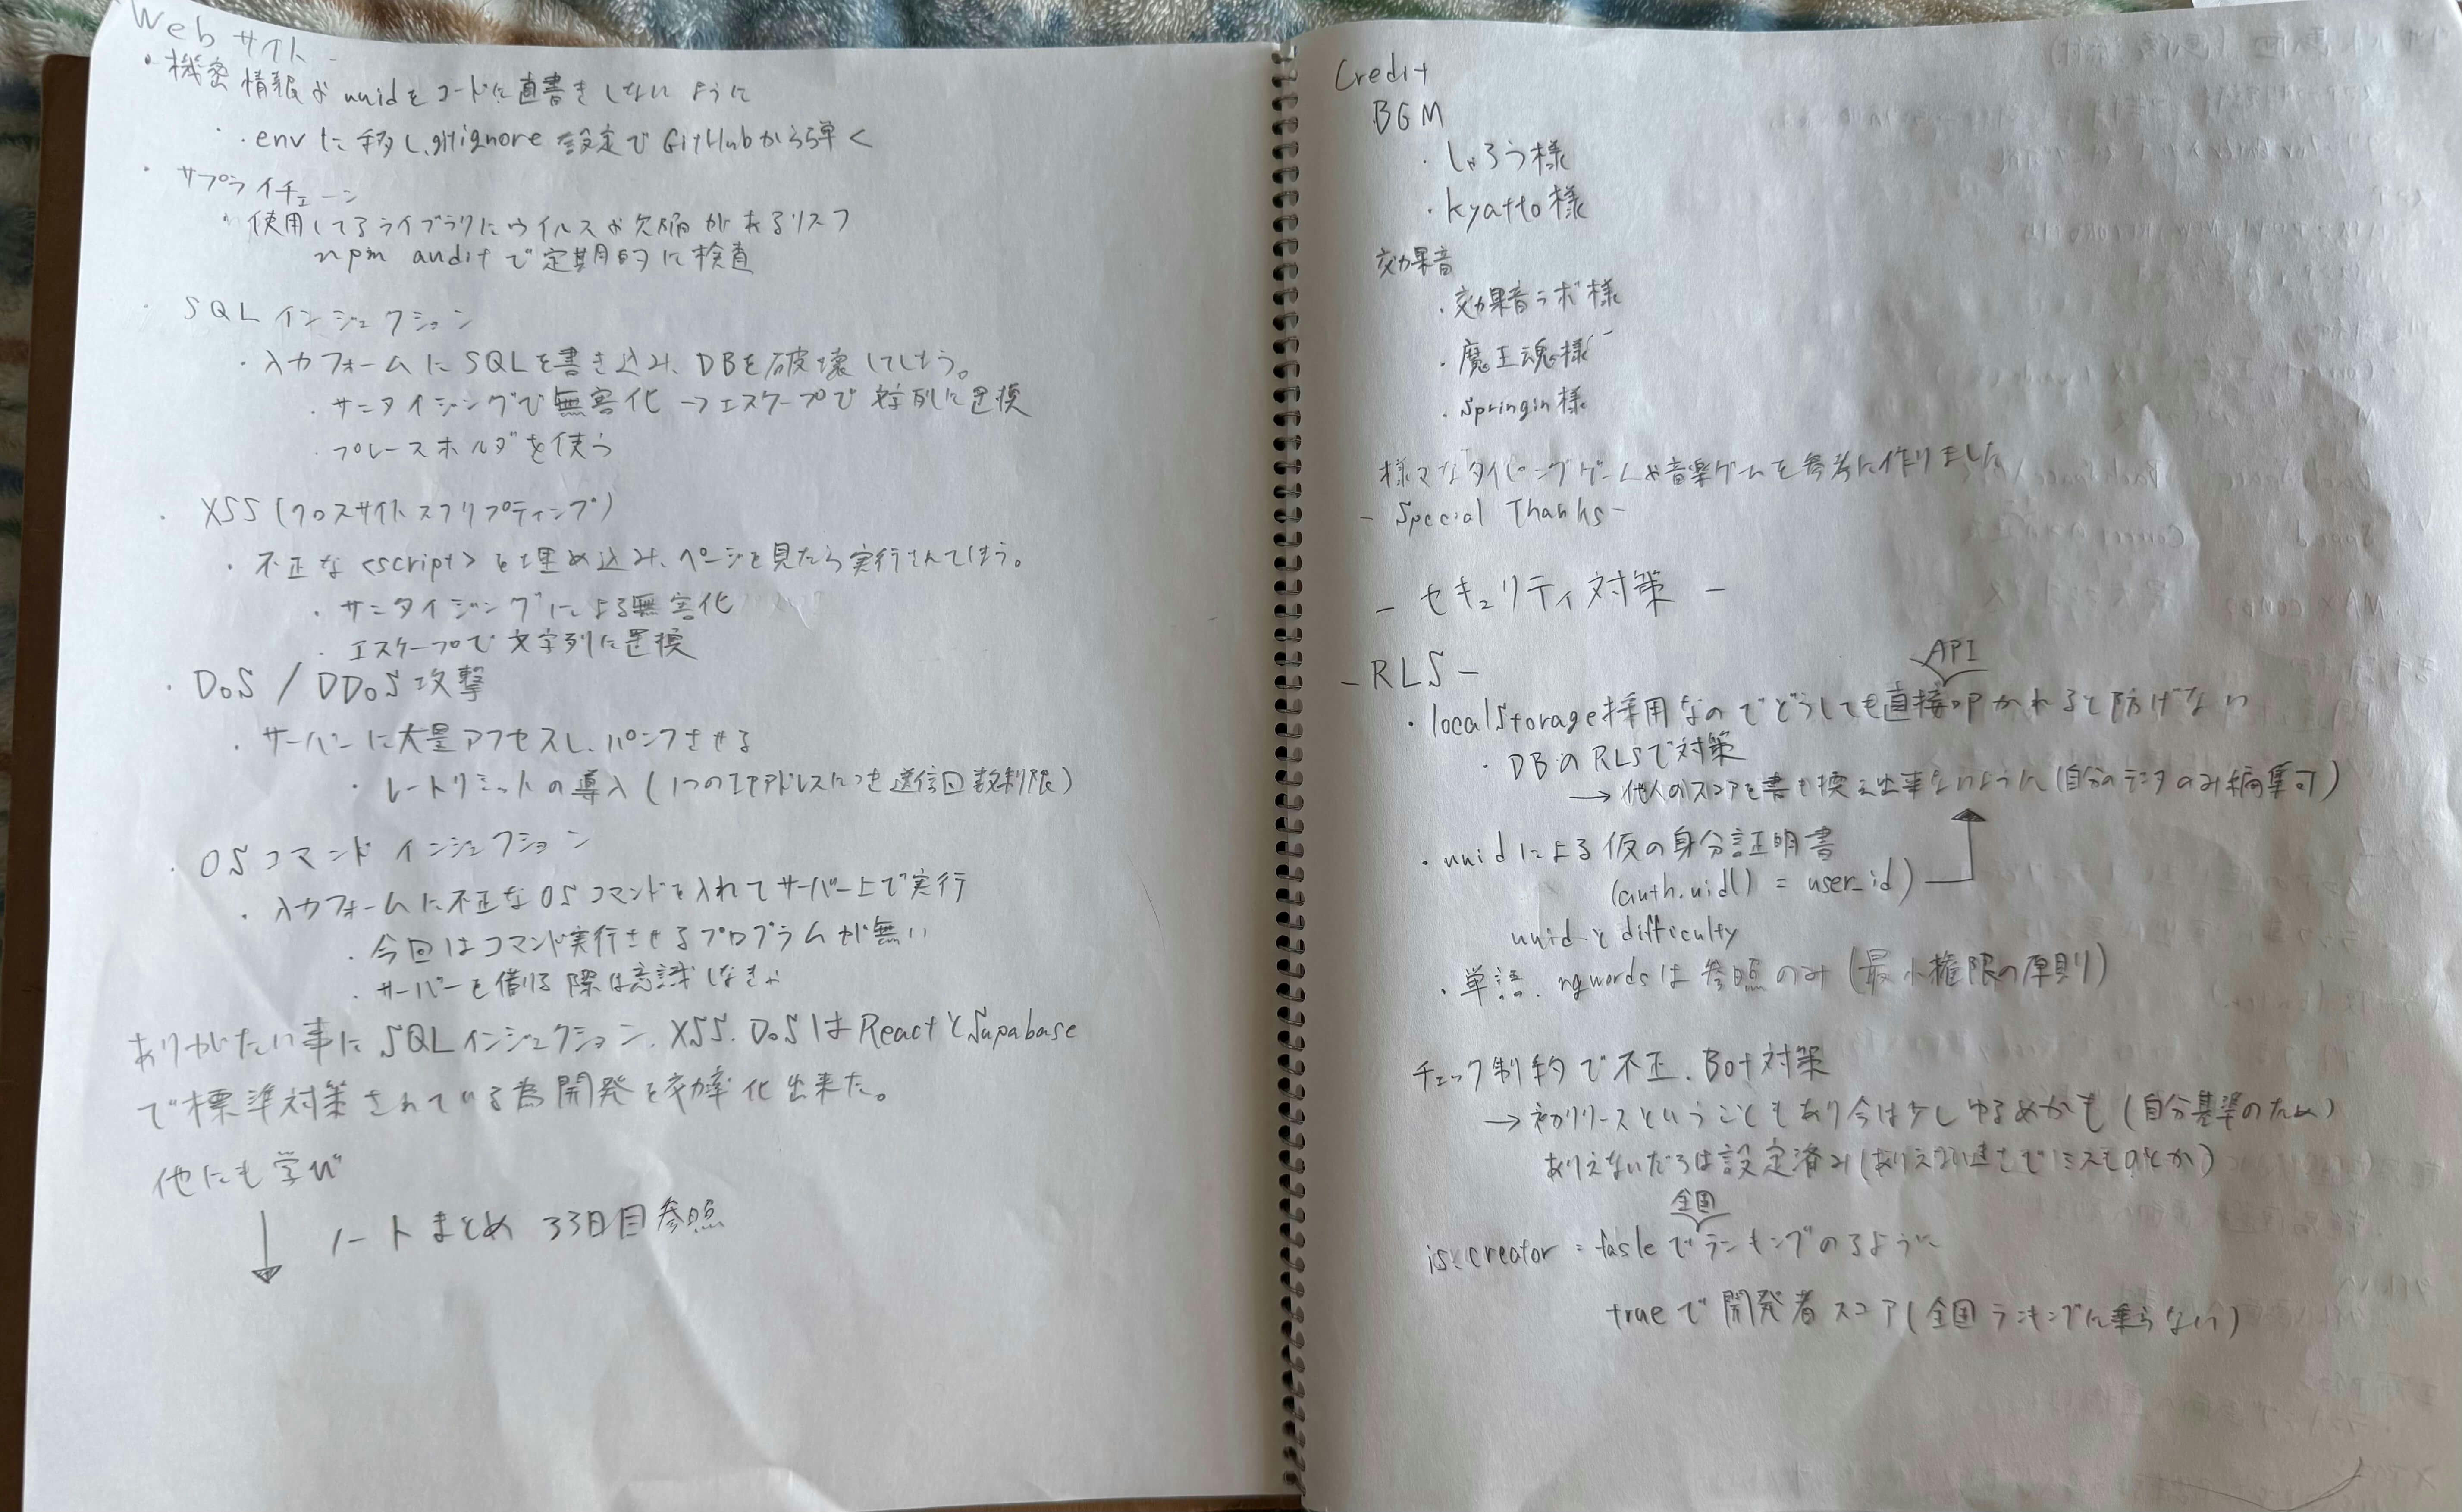 Web サイト
・機密情報やuuidをコードに直書きしないように
・.envに移し.gitignore設定でGitHubから弾く
・サプライチェーン
・使用してるライブラリにウイルスや欠陥があるリスク
npm auditで定期的に検査
・SQLインジェクション
・入力フォームにSQLを書き込み、DBを破壊してしまう。
・サニタイジングで無害化→エスケープで文字列に置換
・プレースホルダを使う
・XSS(クロスサイトスクリプティング)
・不正な<script>を埋め込み、ページを見たら実行されてしまう。
・サニタイジングによる無害化
・エスケープで文字列に置換
・DoS / DDoS攻撃
・サーバーに大量アクセスし、パンクさせる
・レートリミットの導入(1つのIPアドレスにつき送信回数制限)
・OSコマンドインジェクション
・入力フォームに不正なOSコマンドを入れてサーバー上で実行
・今回はコマンド実行させるプログラムが無い
・サーバーを借りる際は意識しなきゃ
ありがたい事にSQLインジェクション、XSS、DoSはReactとSupabase
で標準対策されている為開発を効率化出来た。
他にも学び
↓ ノートまとめ 33日目参照
Credit
BGM
・しゃろう様
・kyatto様
効果音
・効果音ラボ様
・魔王魂様
・Springin様
様々なタイピングゲームや音楽ゲームを参考に作りました
- Special Thanks -
- セキュリティ対策 -
- RLS -
API
・localStorage採用なのでどうしても直接叩かれると防げない
・DBのRLSで対策
→他人のスコアを書き換え出来ないように(自分のデータのみ編集可)
・uuidによる仮の身分証明書
(auth.uid() = user_id)
uuidとdifficulty
・単語、ngwordsは参照のみ(最小権限の原則)
チェック制約で不正、Bot対策
→初リリースということもあり今は少しゆるめかも(自分基準のため)
ありえないだろは設定済み(ありえない速さでミスものとか)
全国
is_creator = fasleでランキングのるように
trueで開発者スコア(全国ランキングに乗らない)